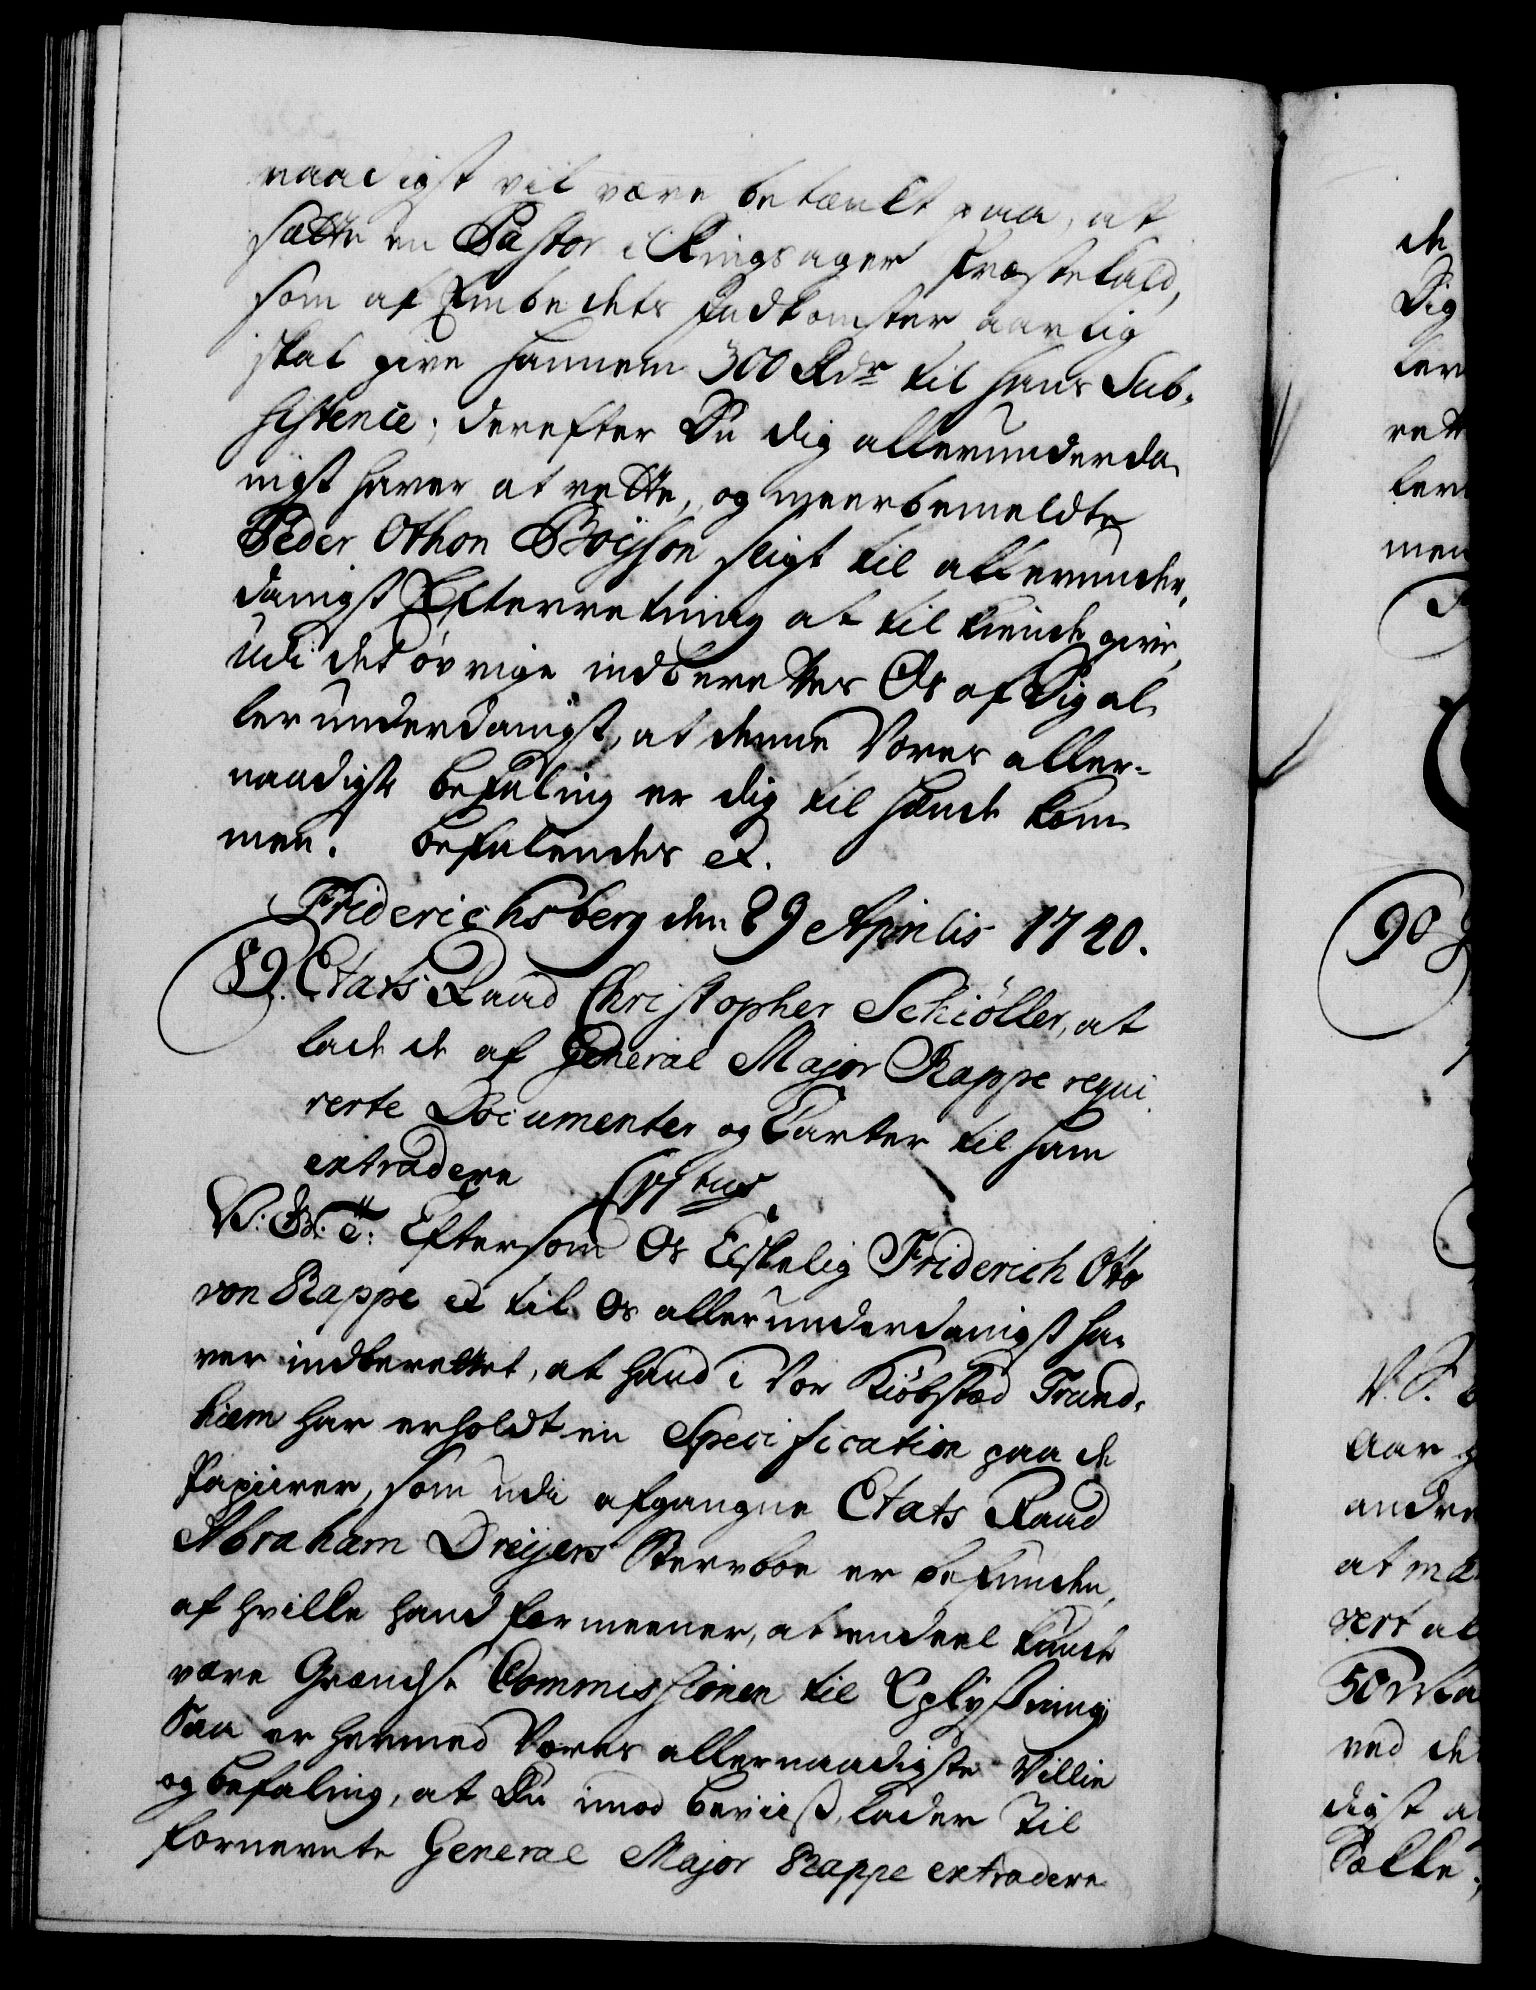 naadigst vil være betænkt paa, at
sætte en Pastor i Ringsager Præstekald,
som af Embedets Indkomster aarlig
skal give hannem 300 Rdr til hans Sub-
sistence; derefter Du dig allerunderda-
nigst haver at rette, og meerbemeldte
Peder Othon Boijson sligt til allerunder-
danigst Efterretning at til kiende give,
udi det øvrige indberettes Os af Dig al-
lerunderdanigst, at denne Vores aller-
naadigste befaling er dig til hænde kom-
men. befalendes etc.
Friderichsberg den 29 Aprilis 1720.
89. Etats Raad Christopher Schiøller, at
lade de af General Major Rappe requi-
rerte Documenter og Carter til ham
extradere
V: G: T: Eftersom Os Elskelig Friderich Otto
von Rappe etc til Os allerunderdanigst ha-
ver indberettet, at hand i Vor Kiøbsted Trund-
hiem har erholdt en Specification paa de
Papiirer, som udi afgangne Etats Raad
Abraham Dreijers Sterrboe er befunden,
af hvilke hand formeener, at endeel kunde
være Grændse Commissionen til Oplysning,
Saa er hermed Vores allernaadigste Villie
og befaling, at Du imod beviis, lader til
fornevnte General Major Rappe extradere